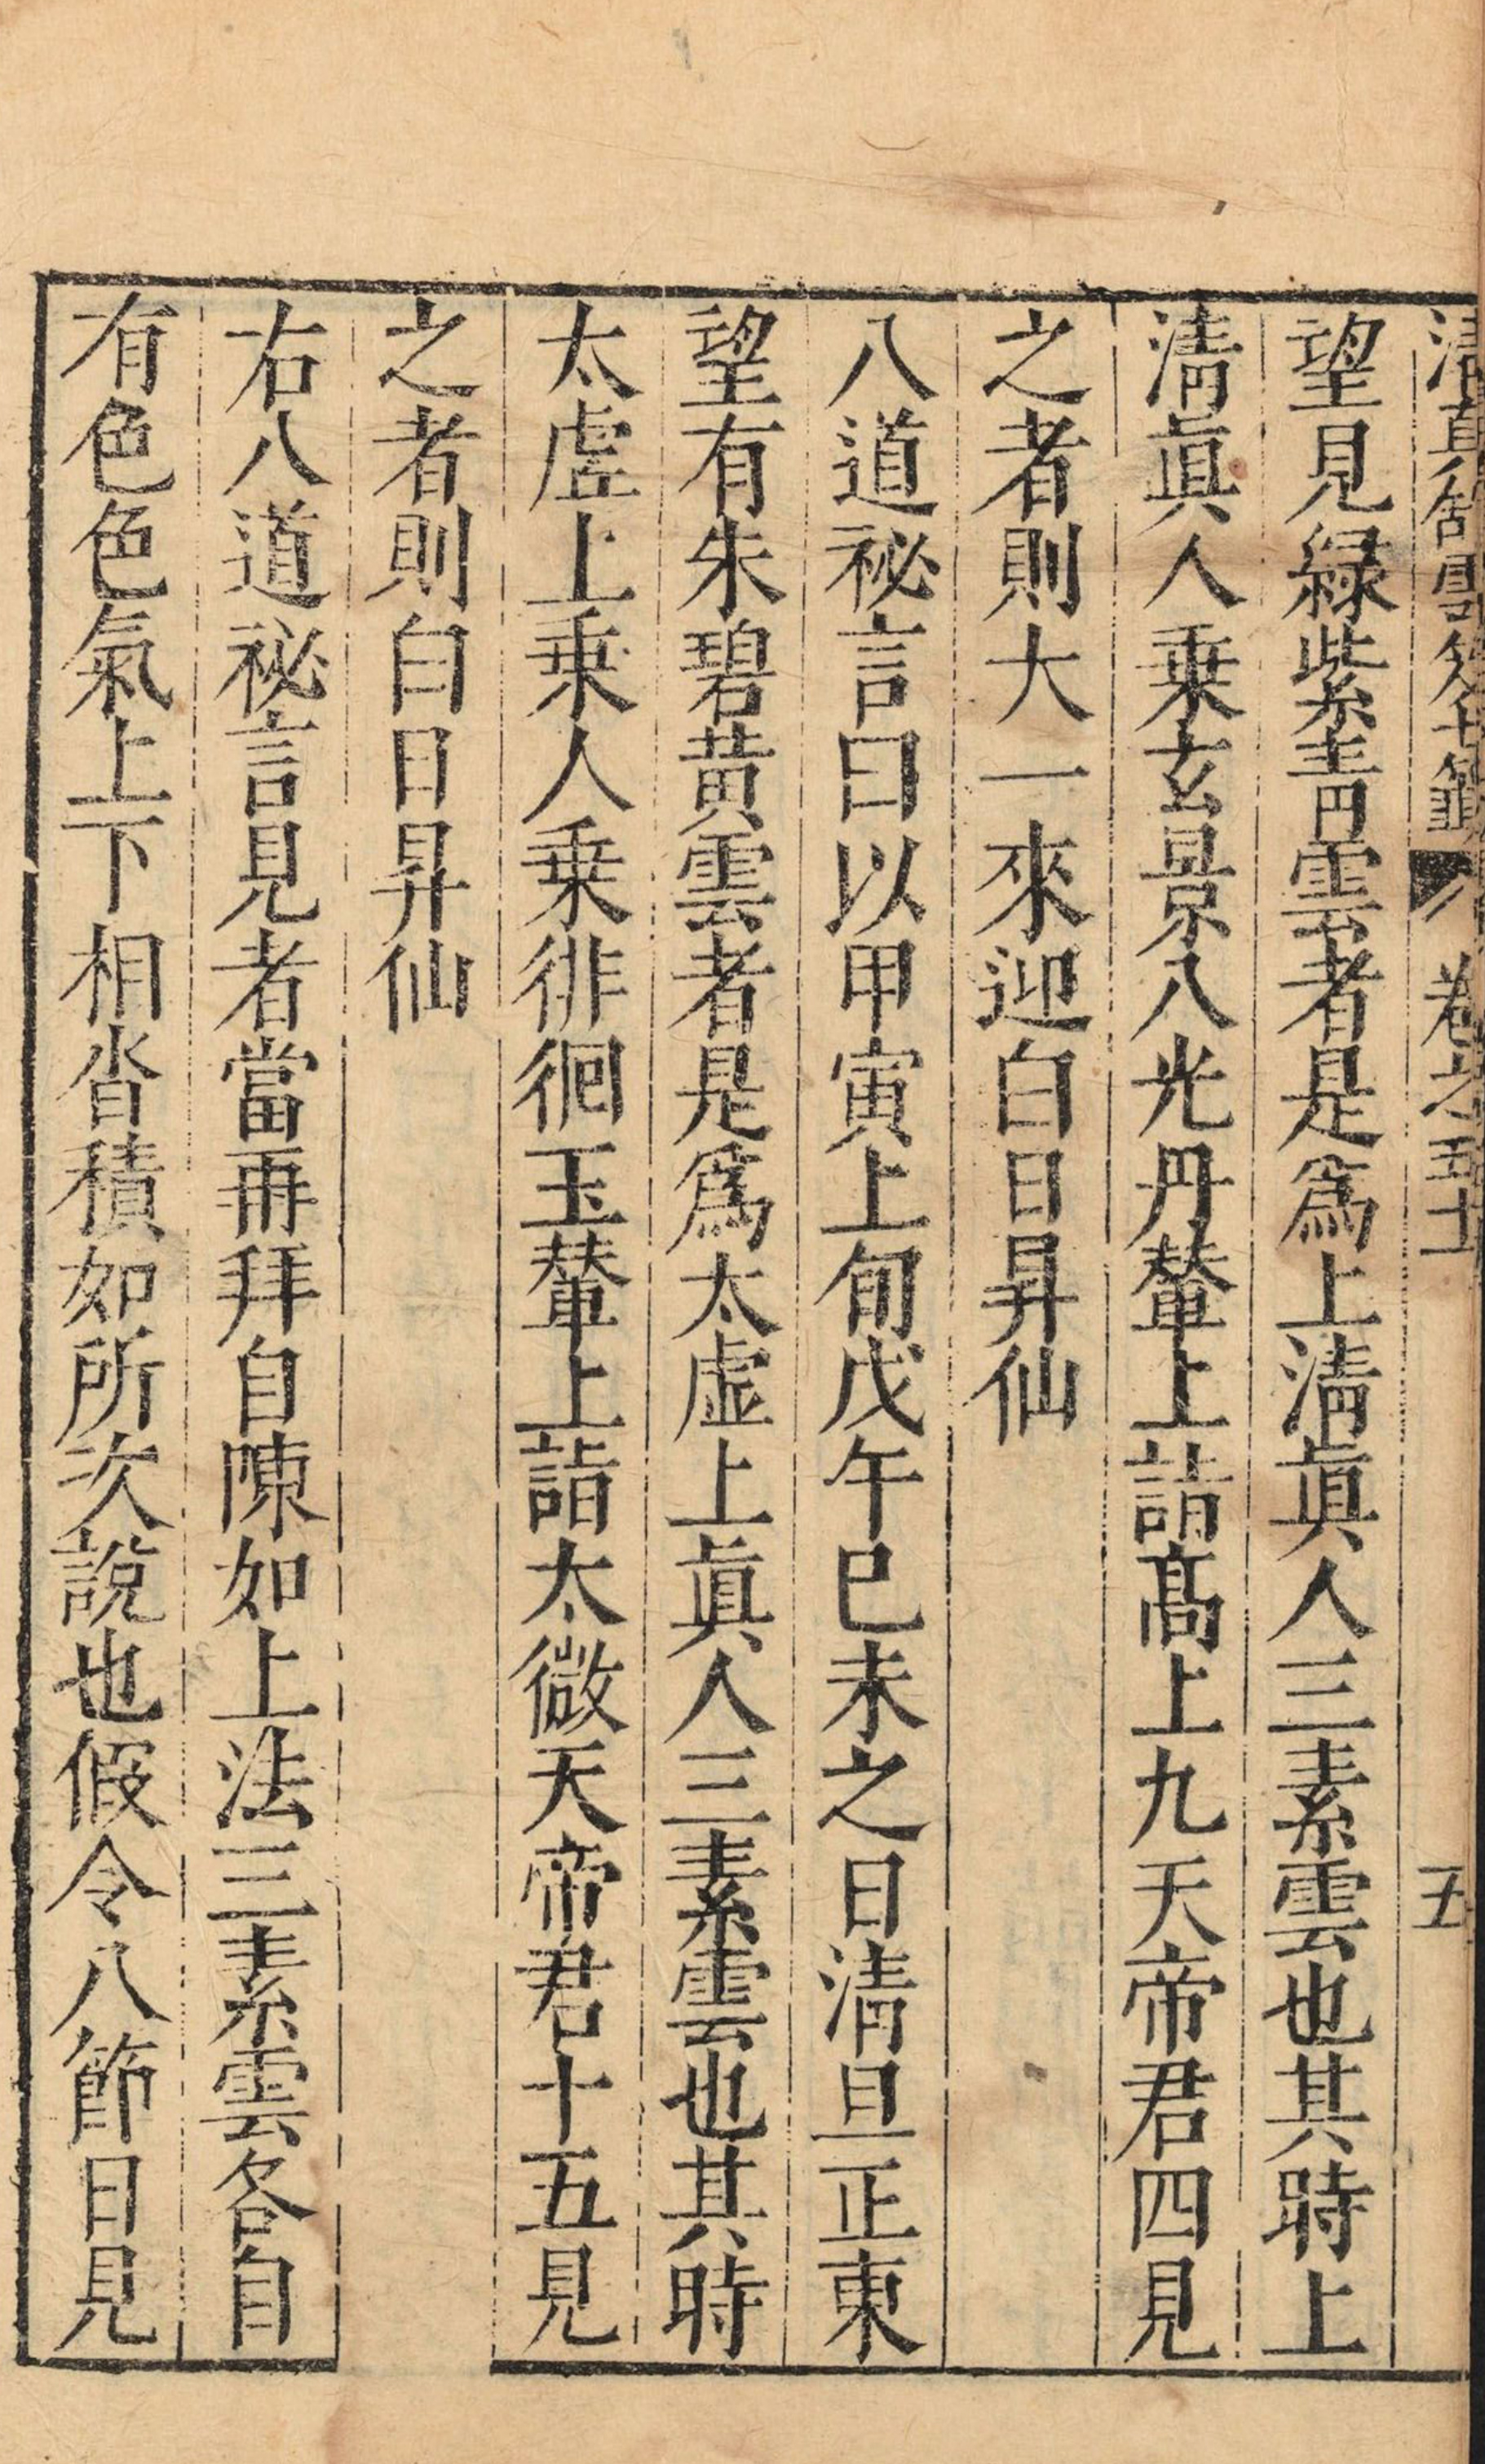 清真館雲笈七籤 卷之五十一 五
望見綠紫青雲者是爲上清眞人三素雲也其時上
清眞人乗玄景八光丹輦上詣髙上九天帝君四見
之者則大一來迎白日昇仙
八道祕言曰以甲寅上旬戊午巳未之日清旦正東
望有朱碧黃雲者是爲太虛上眞人三素雲也其時
太虛上乗人乗徘徊玉輦上詣太微天帝君十五見
之者則白日昇仙
右八道祕言見者當再拜自陳如上法三素雲各自
有色色氣上下相沓積如所次說也假令八節日見